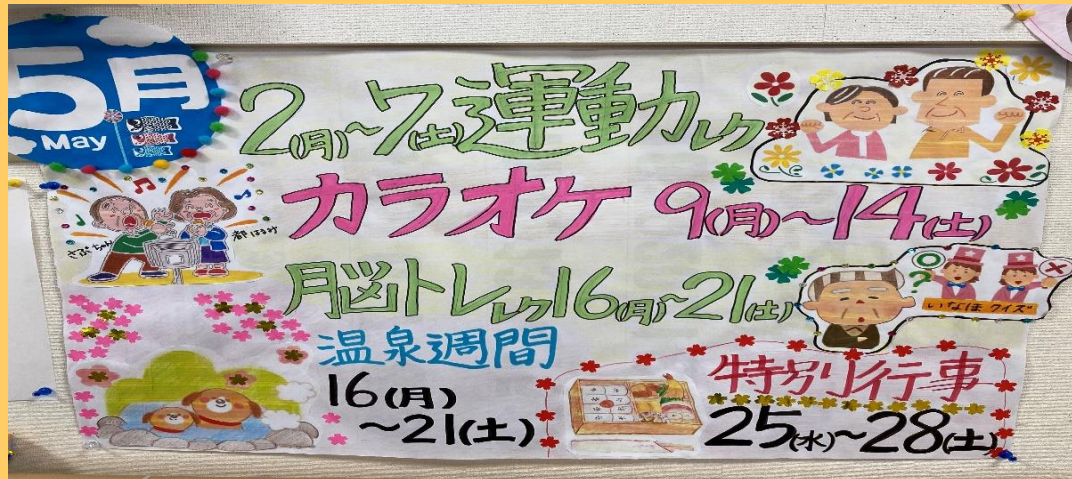 5月
May
2(月)~7(土)運動レク
カラオケ 9(月)~14(土)
さぶちゃん
都はるみ
脳トレレク16(月)~21(土)
○
?
×
いなほクイズ
温泉週間
16(月)
~21(土)
特別行事
25(水)~28(土)